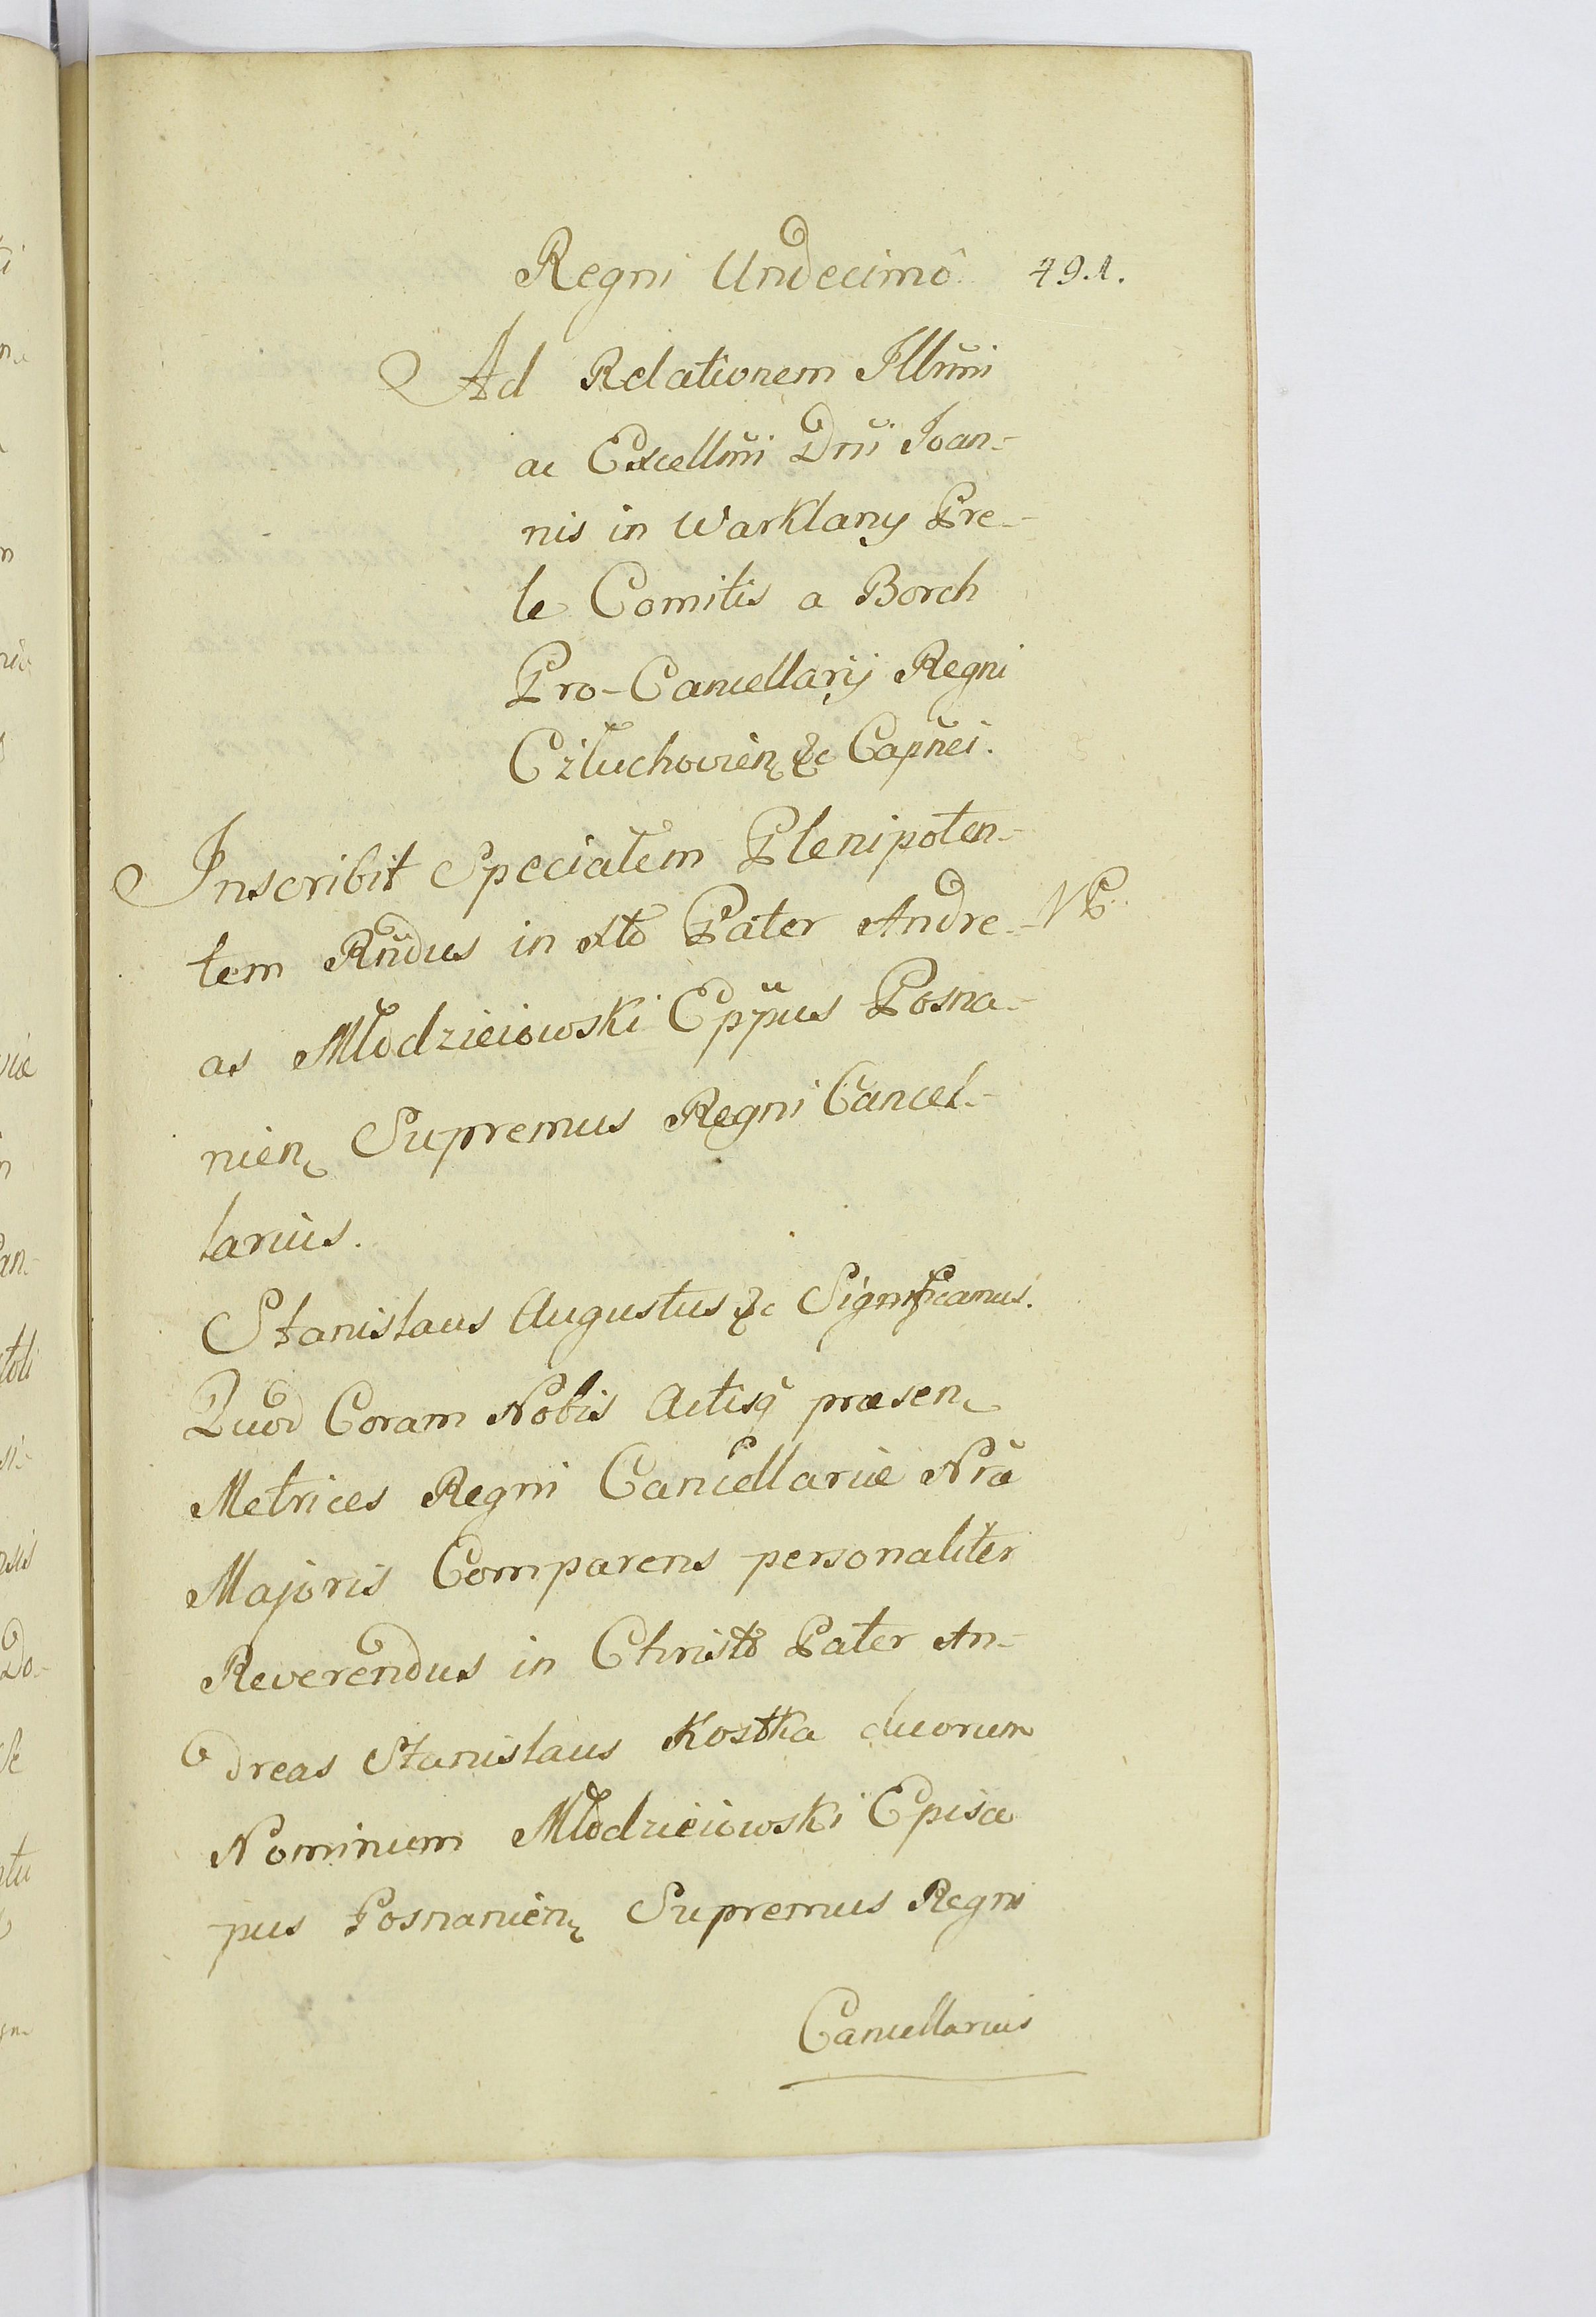 Regni Undecimô 491.
Ad Relationem Illmi
ac Excellmi Dni Ioan-
nis in Warklany Pre-
le Comitis a Borch
Pro-Cancellarij Regni
Człuchovien &c Capnei.
Inscribit Specialem Plenipoten-
tem Rndus in Xto Pater Andre-
as Młodzieiowski Eppus Posna-
nien Supremus Regni Cancel-
larius.
Stanislaus Augustus &c Significamus.
Quod Coram Nobis Actisq̃ præsen
Metrices Regni Cancellariæ Nræ
Majoris Comparens personaliter
Reverendus in Christo Pater An-
dreas Stanislaus Kostka duorum
Nominum Młodzieiowski Episco
pus Posnanien Supremus Regni
Cancellarius